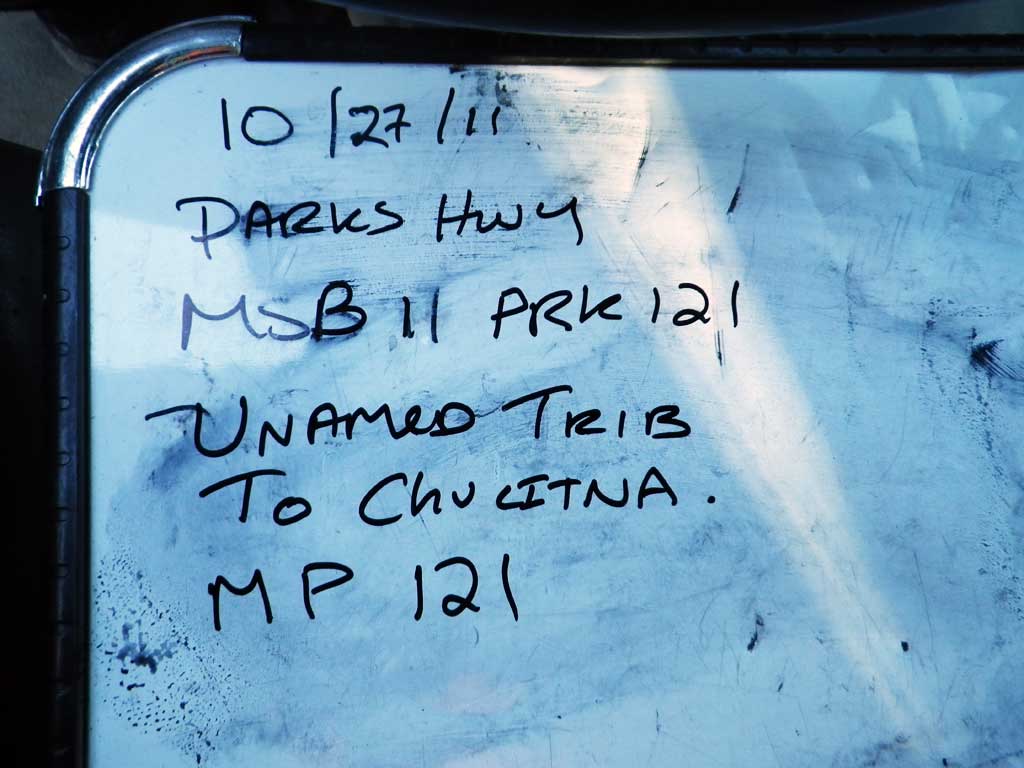 10/27/11
PARKS HWY
MSB 11 PRK 121
UNAMED TRIB
TO CHULITNA.
MP 121